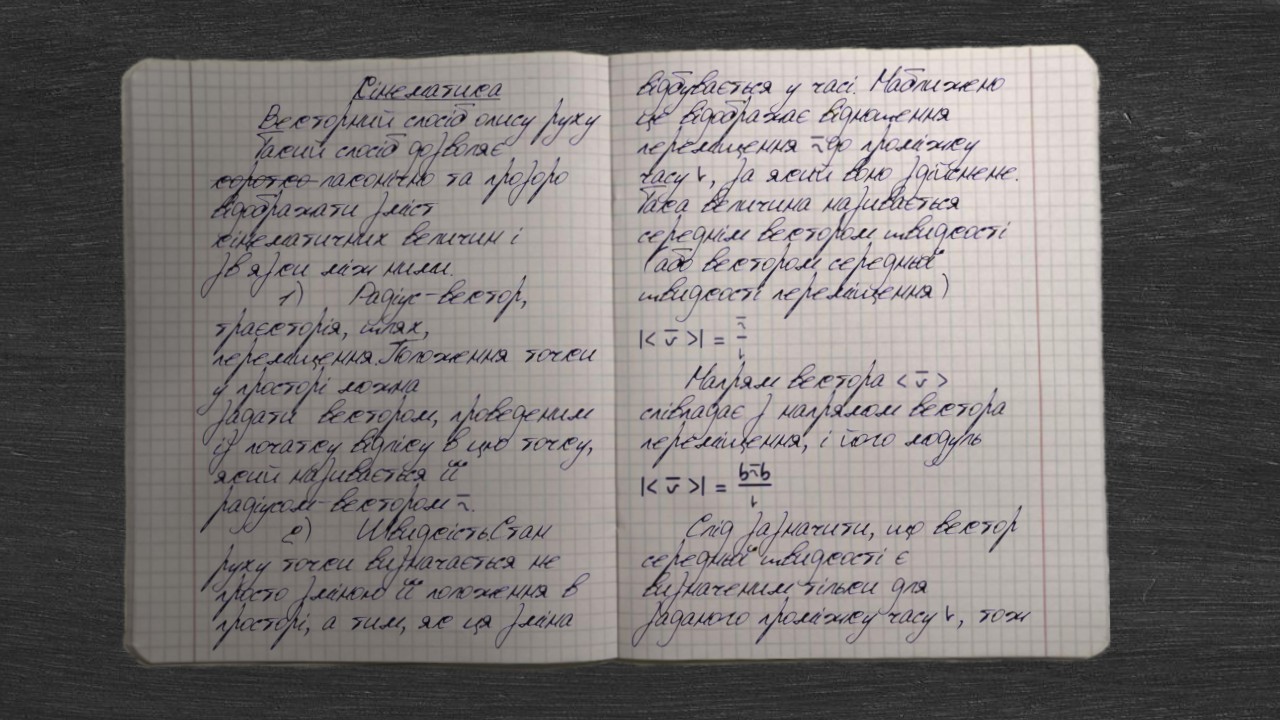 Кінематика
Векторний спосіб опису руху
Такий спосіб дозволяє
коротко лаконічно та прозоро
відображати зміст
кінематичних величин і
зв'язки між ними.
1) Радіус-вектор,
траєкторія, шлях,
переміщення.Положення точки
у просторі можна
задати вектором, проведеним
із початку відліку в цю точку,
який називається її
радіусом-вектором r̄.
2) Швидкість.Стан
руху точки визначається не
просто зміною її положення в
просторі, а тим, як ця зміна
відбувається у часі. Наближено
це відображає відношення
переміщення r̄ до проміжку
часу t, за який воно здійснене.
Така величина називається
середнім вектором швидкості
(або вектором середньої
швидкості переміщення)
|< v̄ >| = r̄/t
Напрям вектора < v̄ >
співпадає з напрямом вектора
переміщення, і його модуль
|< v̄ >| = br̄b/t
Слід зазначити, що вектор
середньої швидкості є
визначеним тільки для
заданого проміжку часу t, тож